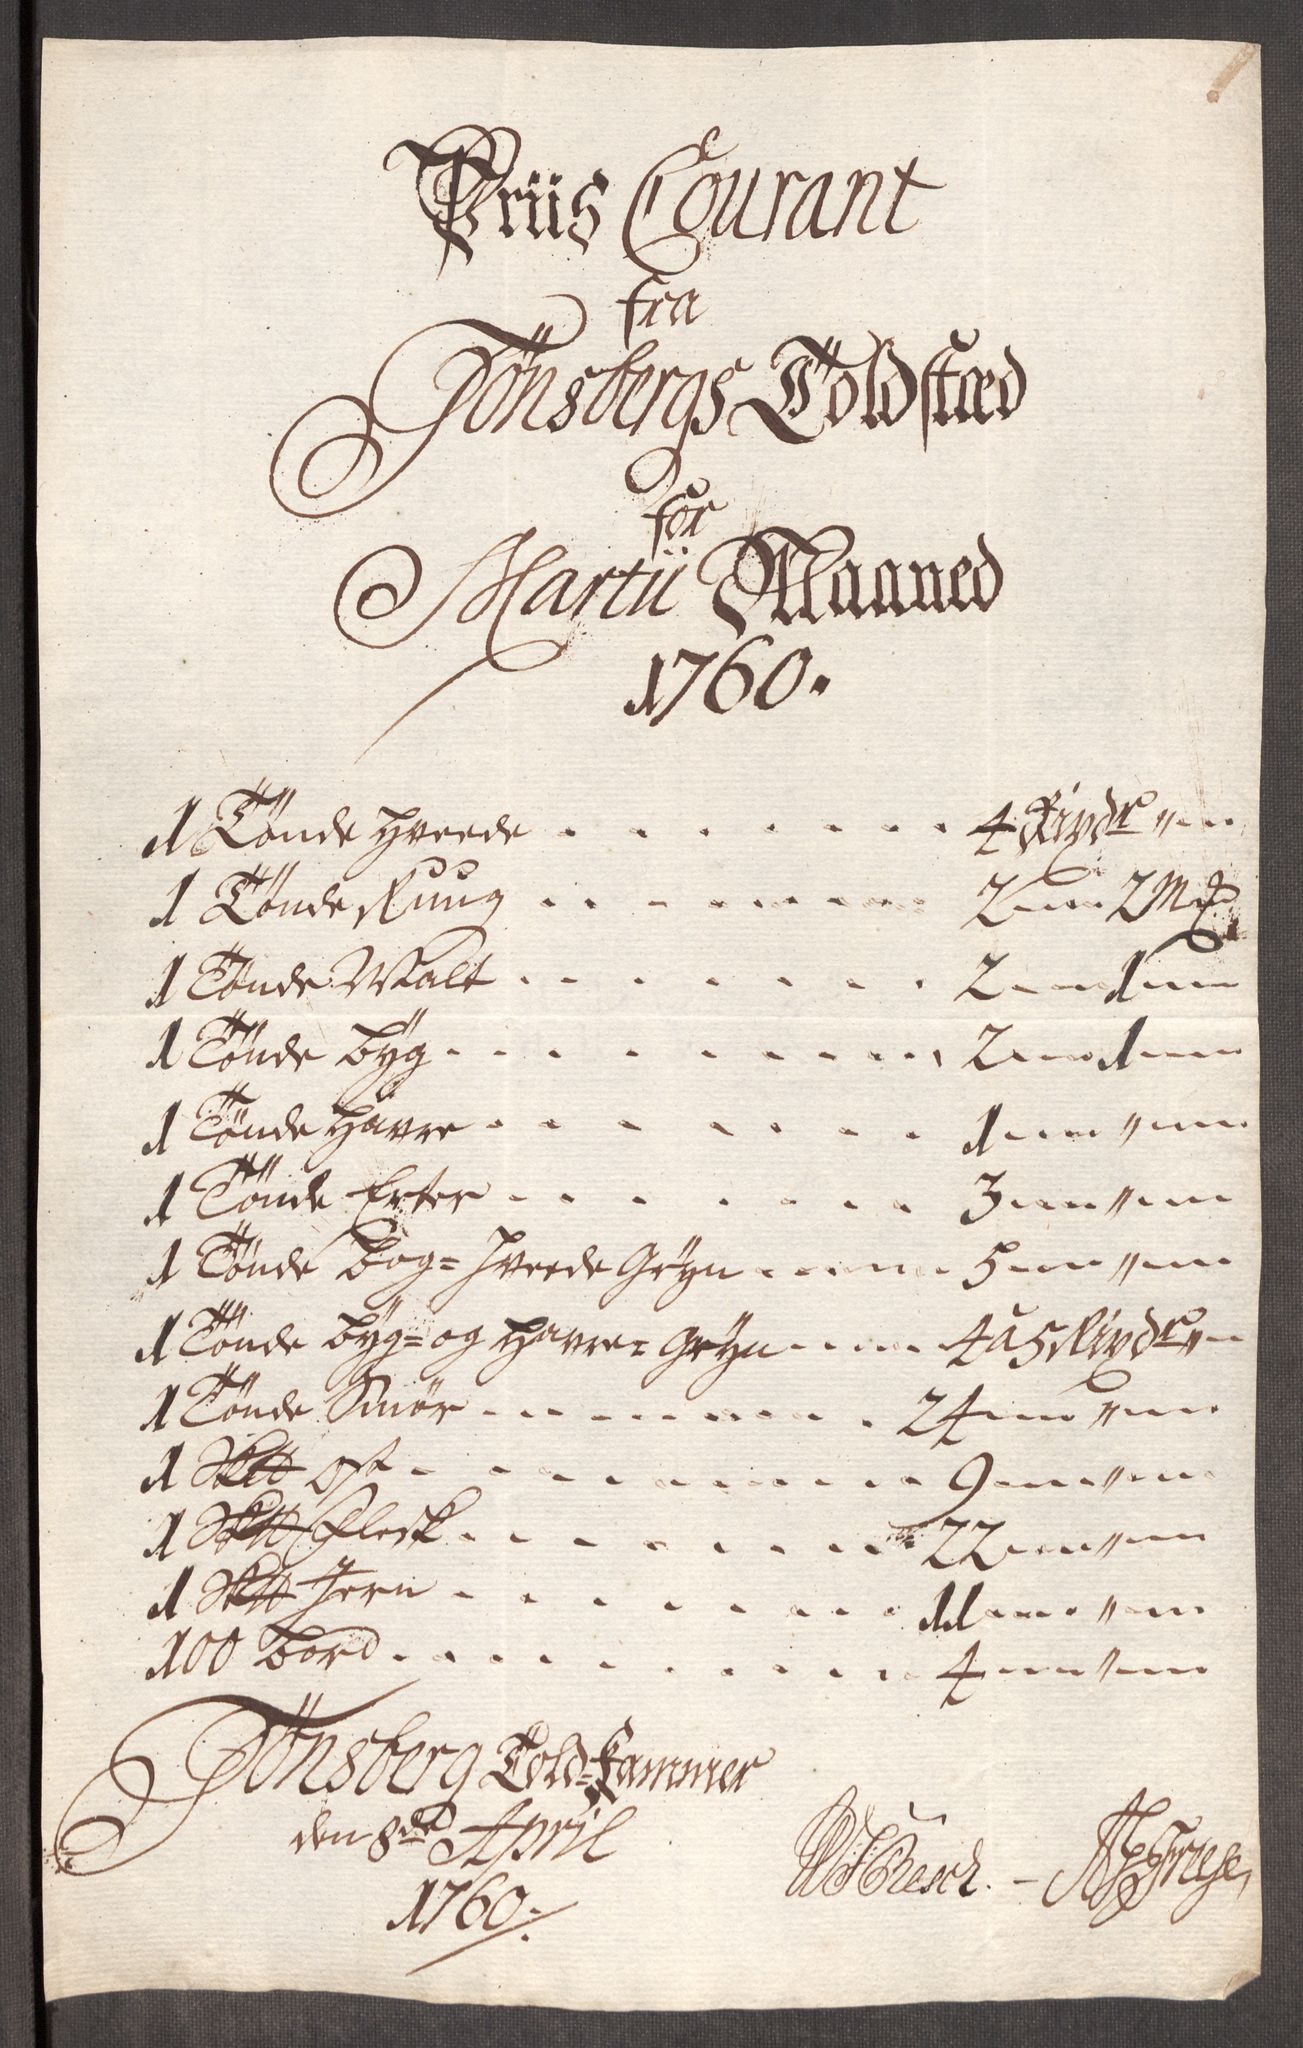 Priis Courant
fra
Tönsbergs Toldstæd
for
Martii Maaned
1760.
1 Tönde Hveede . . . . . . . 4 Rixdr " — "
1 Tönde Ruug . . . . . . . 2 — 2 Mk
1 Tönde Malt . . . . . . . 2 — 1 —
1 Tönde Byg . . . . . . . 2 — 1 —
1 Tönde Havre . . . . . . . 1 — " —
1 Tönde Erter . . . . . . . 3 — " —
1 Tönde Bog= Hveede Gryn . . . . 5 — " —
1 Tönde Byg= og Havre= Gryn . . . 4 a 5 Rixdr " —
1 Tönde Smör . . . . . . . 24 — " —
1 Sktt Ost . . . . . . . 9 — " —
1 Sktt Flesk . . . . . . . 22 — " —
1 Sktt Jern . . . . . . . 11 — " —
100 Bord . . . . . . . 4 — " —
Tönsberg Told=Kammer
den 8de April
1760.